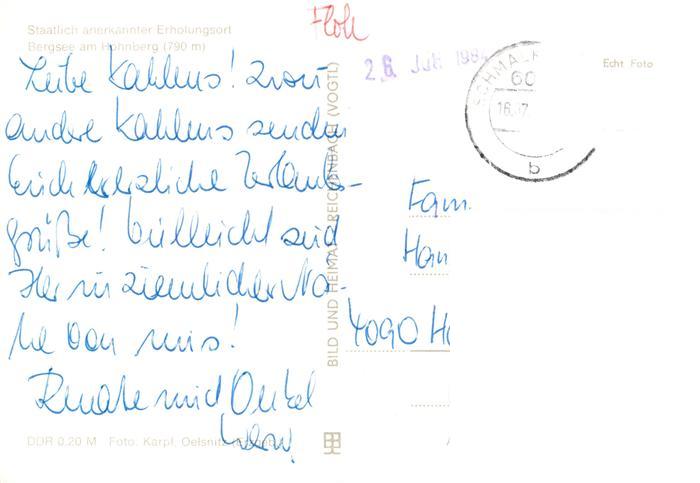 Floh
Staatlich anerkannter Erholungsort
Bergsee am Hohnberg (790 m)
Echt Foto
26. Juli 198
SCHMALK
60
16. 7.
b
Liebe Kahlens! Zwei
andere Kahlens senden
Euch herzliche Urlaubs-
grüße! Vielleicht seid
Ihr in ziemlicher Nä-
he von uns!
Renate und Onkel
Fam.
Han
4090 H
BILD UND HEIMAT REICHENBACH (VOGTL)
DDR 0,20 M Foto: Karpf, Oelsnitz (Erzgeb.)